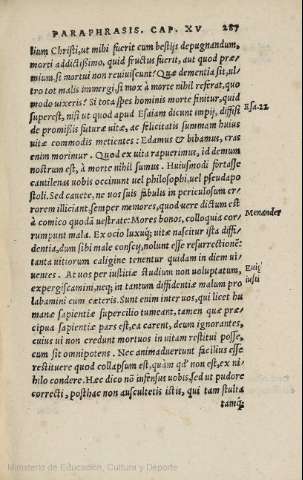 PARAPHRASIS. CAP. XV 287
lium Christi, ut mihi fuerit cum bestijs depugnandum,
morti addictissimo, quid fructus fuerit, aut quod præ-
mium, si mortui non reuiuiscunt? Quæ dementia sit, ul-
tro tot malis immergi, si mox à morte nihil referat, quo
modo uixeris? Si tota spes hominis morte finitur, quid
superest, nisi ut quod apud Esaiam dicunt impij, diffisi
Esa.22
de promissis futuræ uitæ, ac felicitatis summam huius
uitæ commodis metientes: Edamus & bibamus, cras
enim morimur. Quod ex uita rapuerimus, id demum
nostrum est, à morte nihil sumus. Huiusmodi fortasse
cantilenas uobis occinunt uel philosophi, uel pseudapo
stoli. Sed cauete, ne uos suis fabulis in periculosum er-
rorem illiciant, semper memores, quod uere dictum est
à comico quodã uestrate: Mores bonos, colloquia cor-
Menander
rumpunt mala. Ex ocio luxuq; uitæ nascitur ista diffi-
dentia, dum sibi male conscij, nolunt esse resurrectionē:
tanta uitiorum caligine tenentur quidam in diem ui-
uentes. At uos per iustitiæ studium non uoluptatum,
expergiscamini, ncq; in tantum diffidentiæ malum pro
labamini cum cæteris. Sunt enim inter uos, qui licet hu
manæ sapientiæ supercilio tumeant, tamen quæ præ-
cipua sapientiæ pars est, ea carent, deum ignorantes,
cuius ui non credunt mortuos in uitam restitui posse,
cum sit omnipotens. Nec animaduertunt facilius esse
restituere quod collapsum est, quàm qd' non est, ex ni-
hilo condere. Hæc dico nō infensus uobis, sed ut pudore
correcti, posthac non auscultetis istis, qui tam stulta
tamq;
Ministerio de Educación, Cultura y Deporte